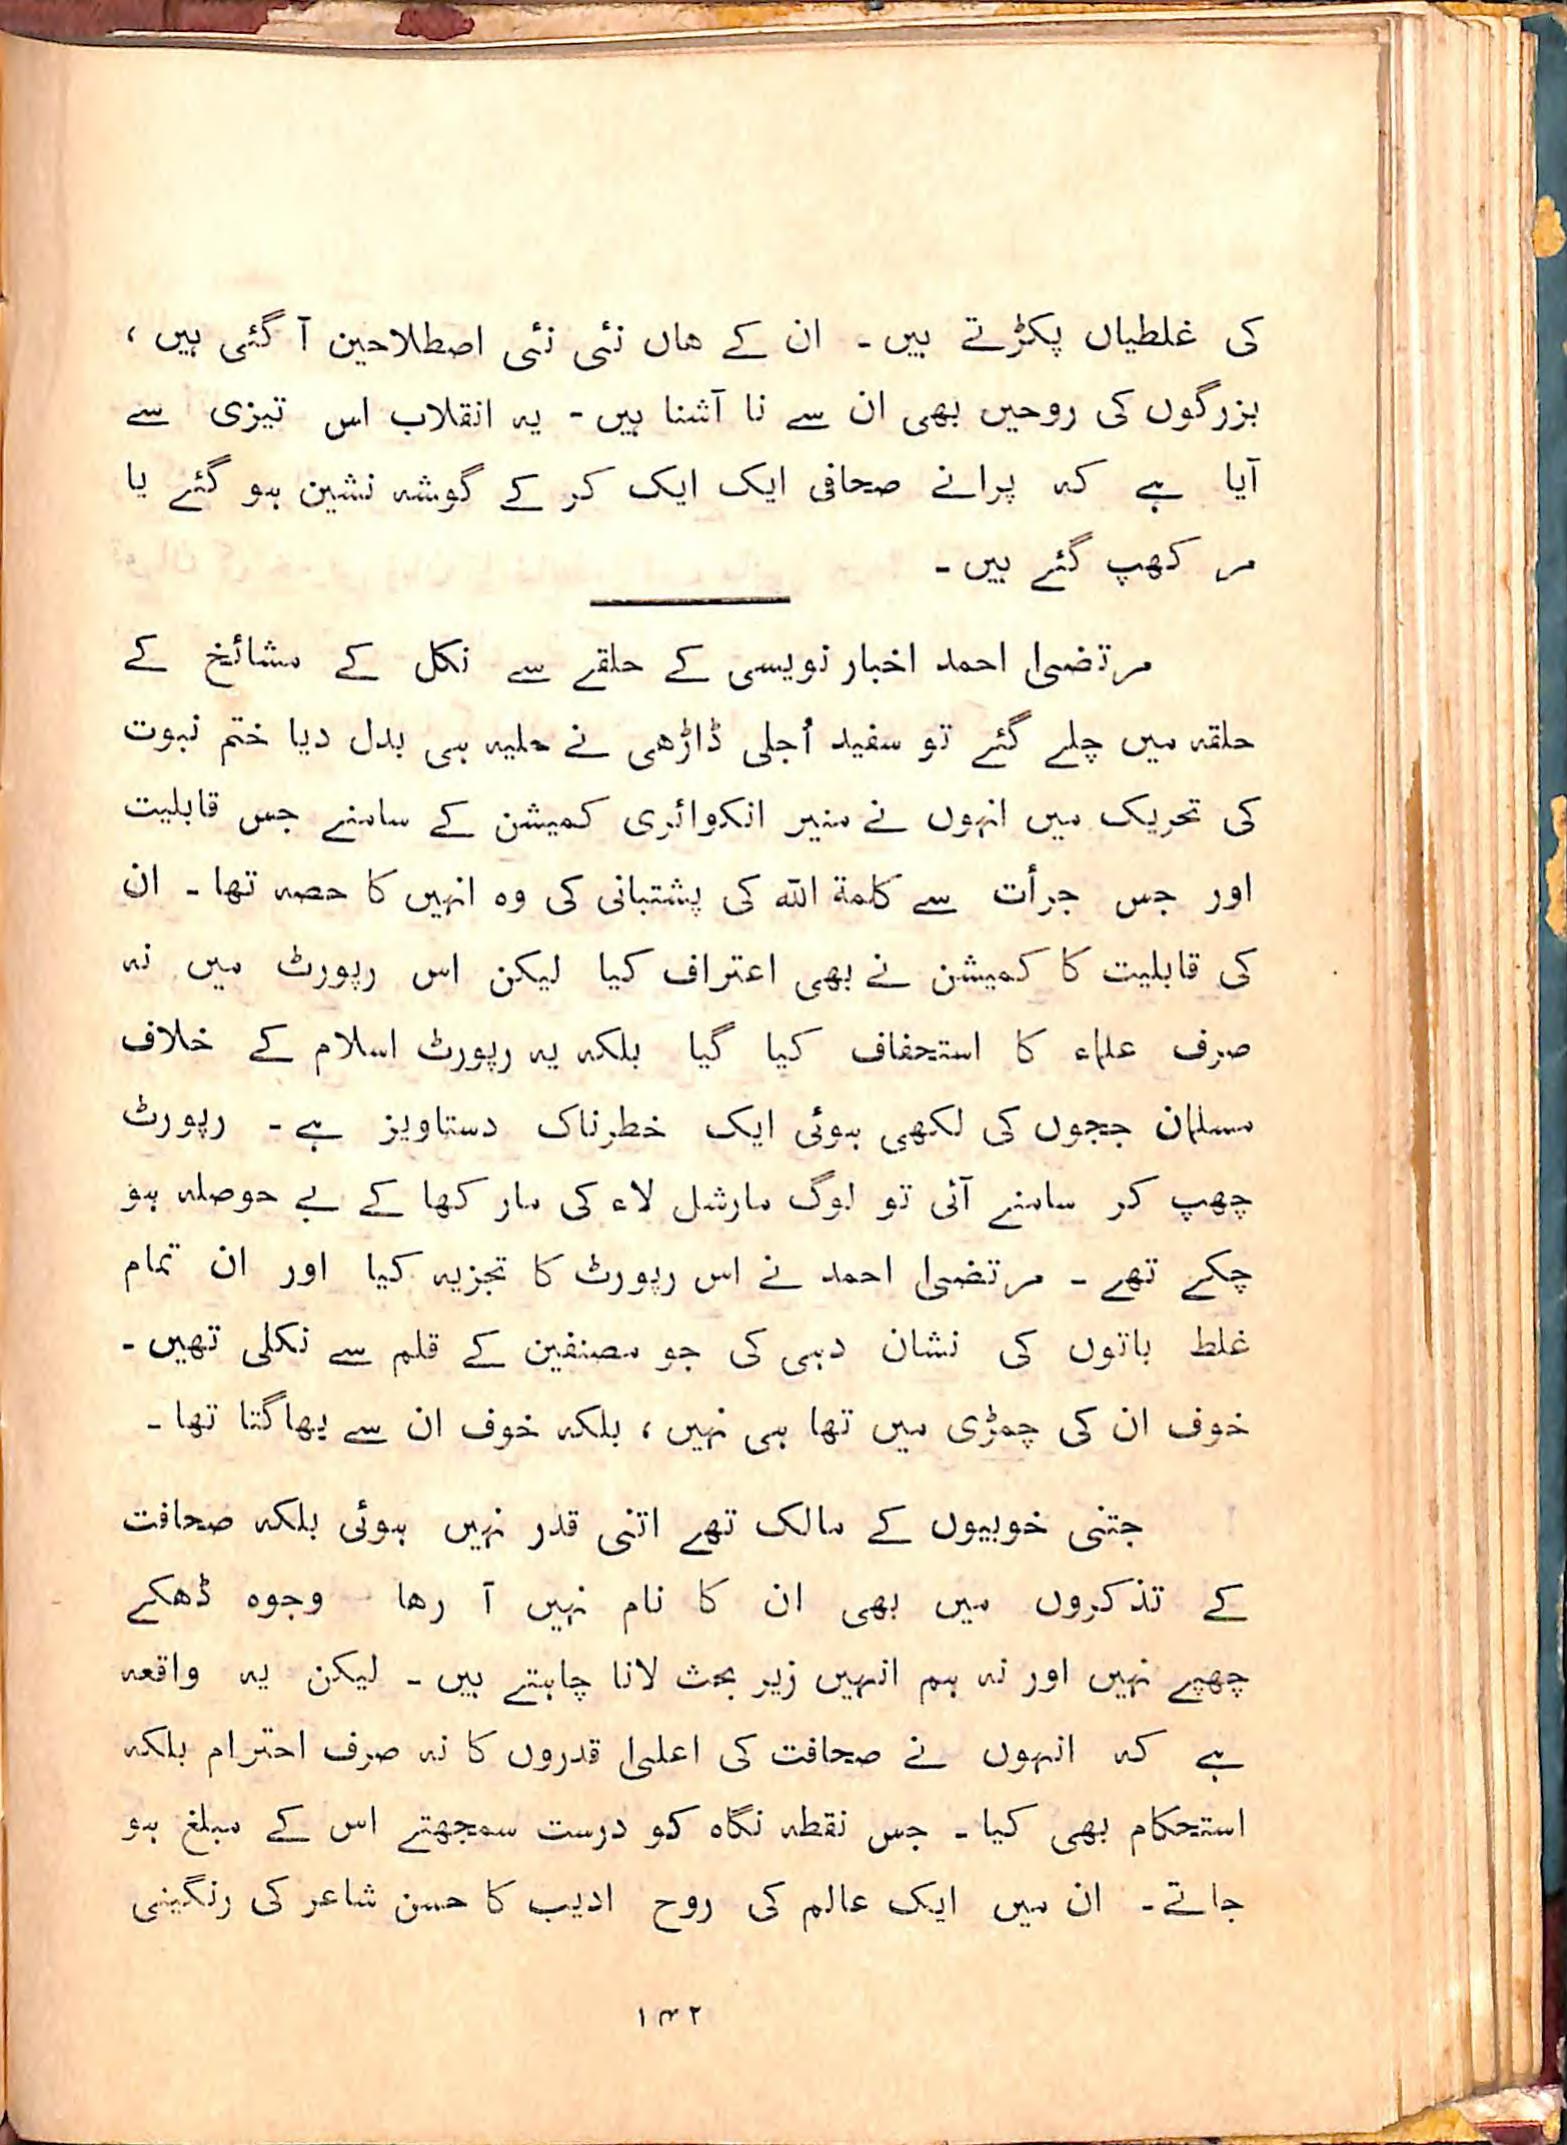 کی غلطیاں پکڑتے ہیں ۔ ان کے ھاں نئی نئی اصطلاحین آ گئی ہیں ،
بزرگوں کی روحیں بھی ان سے نا آشنا ہیں - یہ انقلاب اس تیزی سے
آیا ہے کہ پرانے صحافی ایک ایک کر کے گوشہ نشین ہو گئے یا
مر کھپ گئے ہیں ۔
مرتضیٰ احمد اخبار نویسی کے حلقے سے نکل کے مشائخ کے
حلقہ میں چلے گئے تو سفید اُجلی ڈاڑھی نے حلیہ ہی بدل دیا ختم نبوت
کی تحریک میں انہوں نے منیر انکوائری کمیشن کے سامنے جس قابلیت
اور جس جرأت سے کلمة اللہ کی پشتبانی کی وہ انہیں کا حصہ تھا ۔ ان
کی قابلیت کا کمیشن نے بھی اعتراف کیا لیکن اس رپورٹ میں نہ
صرف علماء کا استحفاف کیا گیا بلکہ یہ رپورٹ اسلام کے خلاف
مسلمان ججوں کی لکھی ہوئی ایک خطرناک دستاویز ہے ۔ رپورٹ
چھپ کر سامنے آئی تو لوگ مارشل لاء کی مار کھا کے بے حوصلہ ہو
چکے تھے ۔ مرتضیٰ احمد نے اس رپورٹ کا تجزیہ کیا اور ان تمام
غلط باتوں کی نشان دہی کی جو مصنفین کے قلم سے نکلی تھیں ۔
خوف ان کی چمڑی میں تھا ہی نہیں ، بلکہ خوف ان سے بھاگتا تھا ۔
جتنی خوبیوں کے مالک تھے اتنی قدر نہیں ہوئی بلکہ صحافت
کے تذکروں میں بھی ان کا نام نہیں آ رھا وجوہ ڈھکے
چھپے نہیں اور نہ ہم انہیں زیر بحث لانا چاہتے ہیں ۔ لیکن یہ واقعہ
ہے کہ انہوں نے صحافت کی اعلیٰ قدروں کا نہ صرف احترام بلکہ
استحکام بھی کیا ۔ جس نقطہ نگاہ کو درست سمجھتے اس کے مبلغ ہو
جاتے ۔ ان میں ایک عالم کی روح ادیب کا حسن شاعر کی رنگینی
۱۴۲